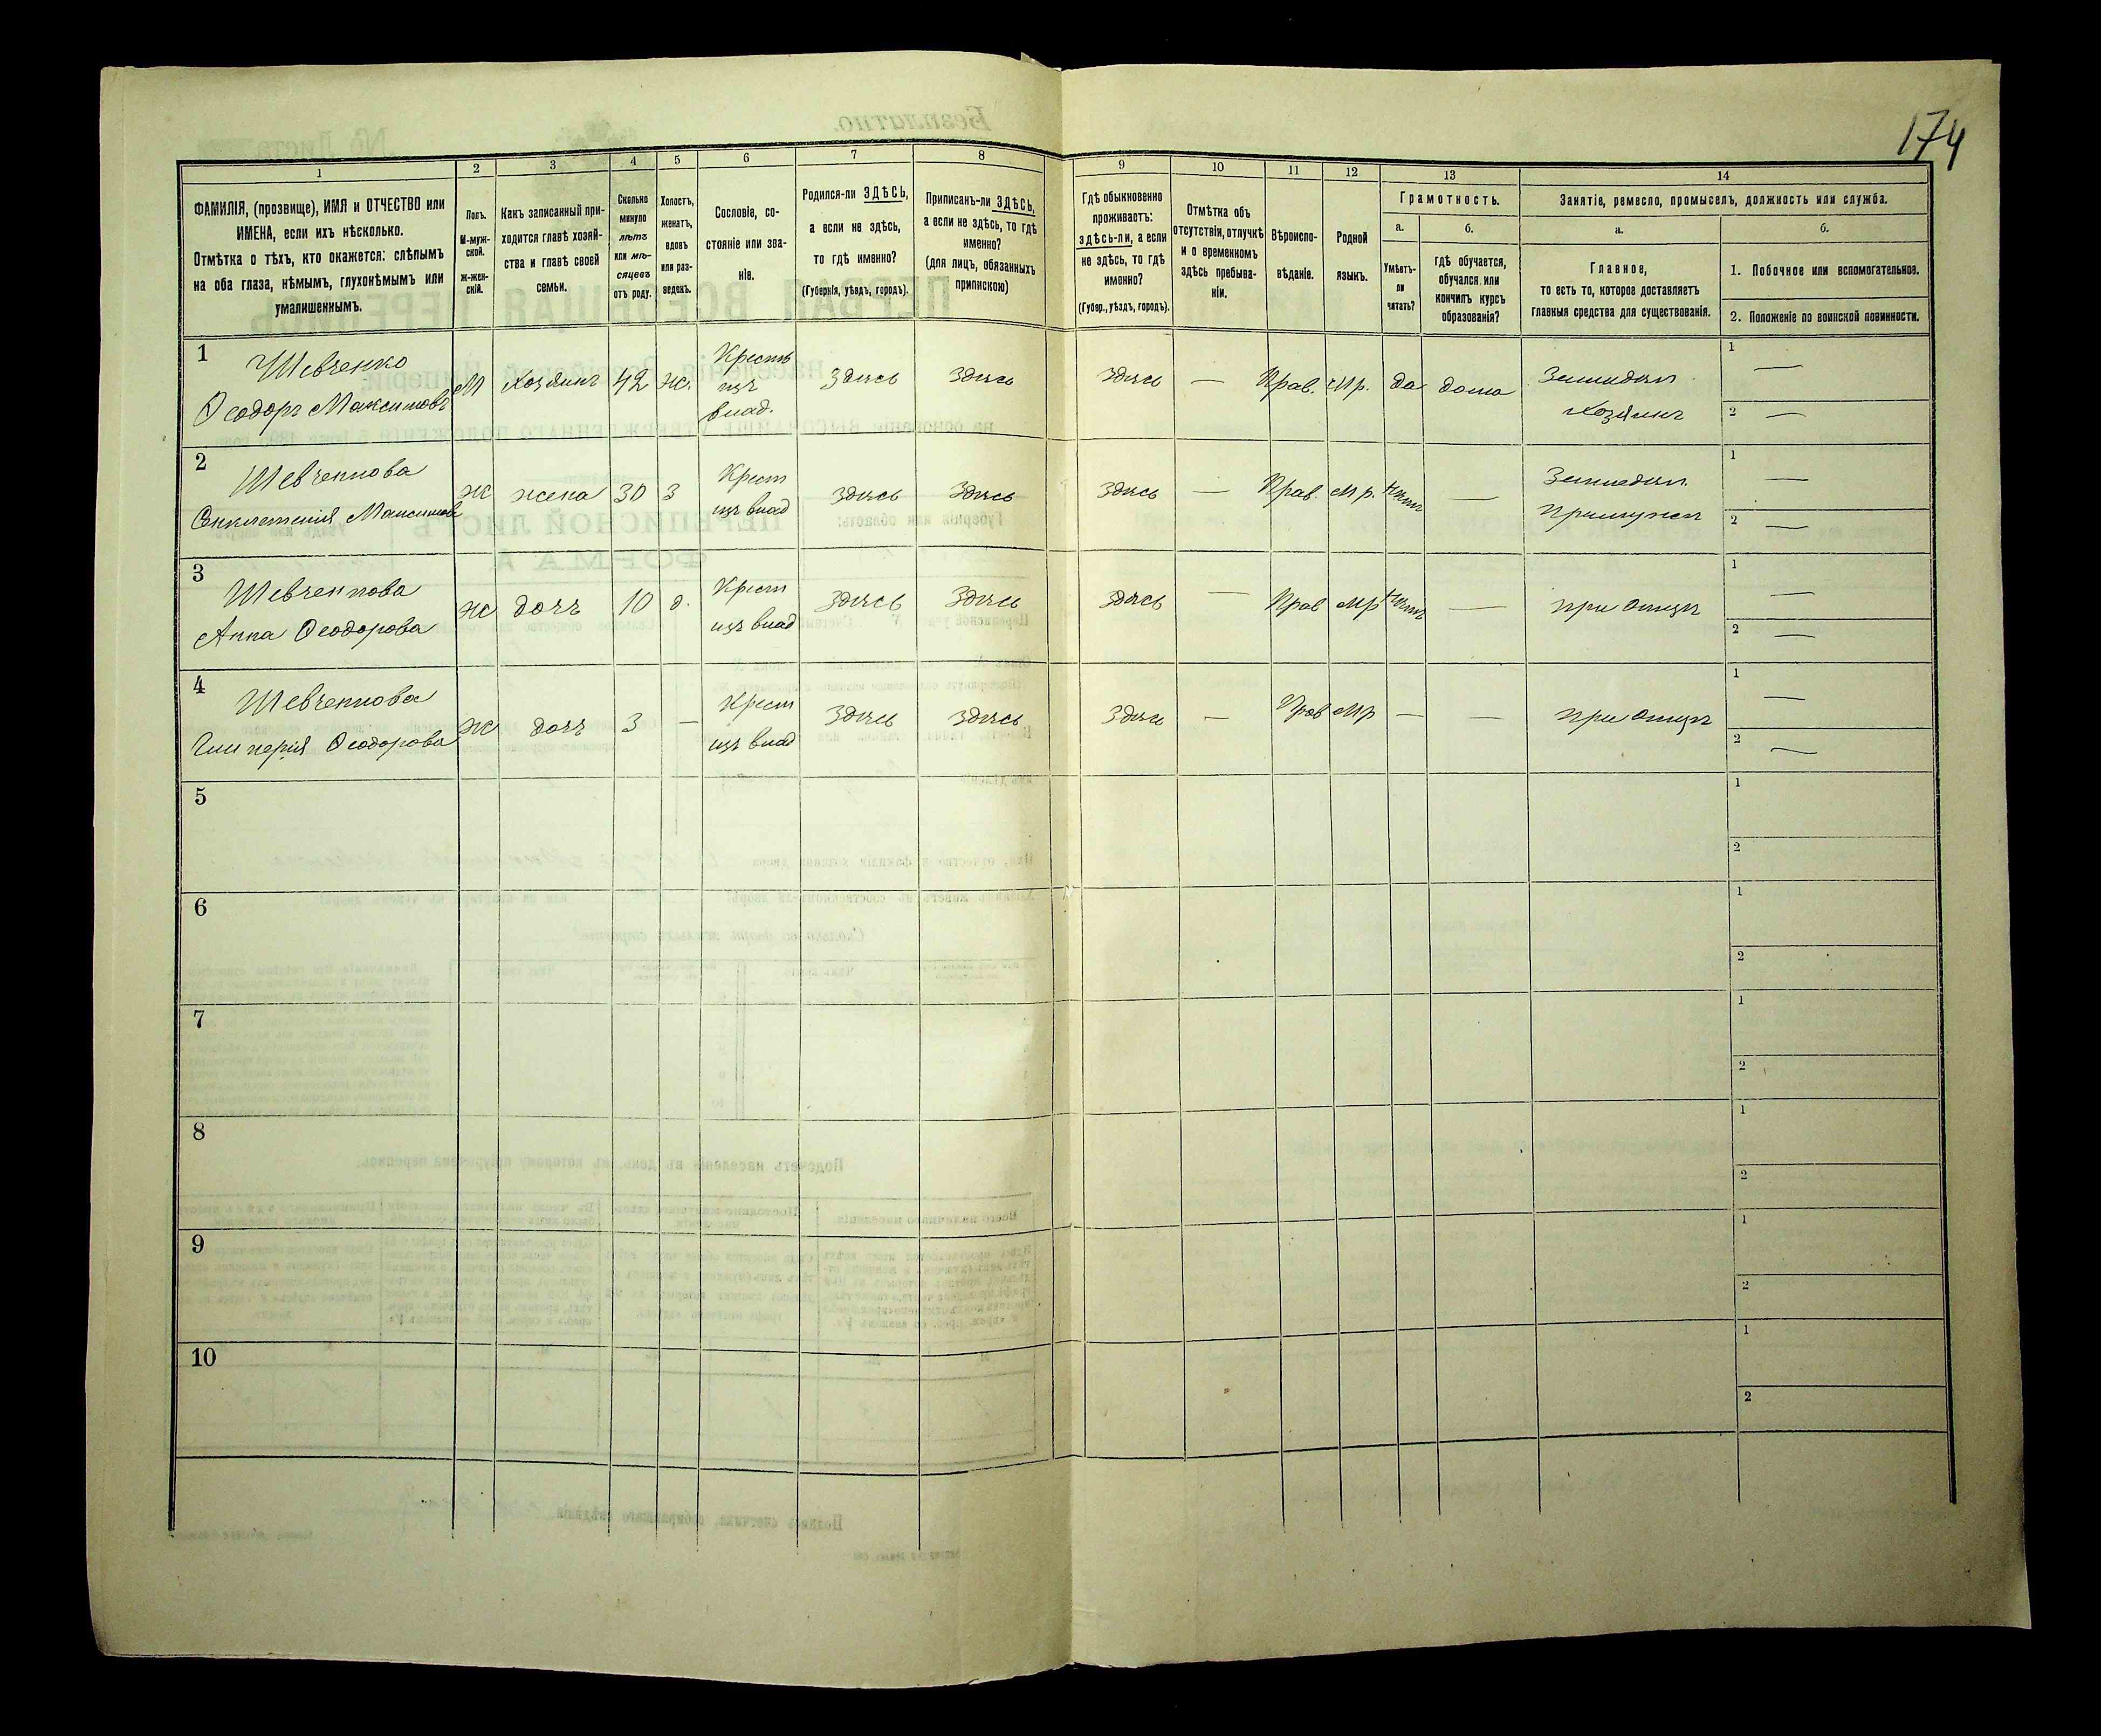 174
1
2
3
4
5
6
7
8
9
10
11
12
13
14
ФАМИЛІЯ, (прозвище), ИМЯ и ОТЧЕСТВО или
ИМЕНА, если ихъ нѣсколько.
Отмѣтка о тѣхъ, кто окажется: слѣпымъ
на оба глаза, нѣмымъ, глухонѣмымъ или
умалишеннымъ.
Полъ.
М-муж-
ской.
ж-жен-
скій.
Какъ записанный при-
ходится главѣ хозяй-
ства и главѣ своей
семьи.
Сколько
минуло
лѣтъ
или мѣ-
сяцевъ
отъ роду.
Холостъ,
женатъ,
вдовъ
или раз-
веденъ.
Сословіе, со-
стояніе или зва-
ніе.
Родился-ли ЗДѢСЬ,
а если не здѣсь,
то гдѣ именно?
(Губернія, уѣздъ, городъ).
Приписанъ-ли ЗДѢСЬ,
а если не здѣсь, то гдѣ
именно?
(для лицъ, обязанныхъ
припискою)
Гдѣ обыкновенно
проживаетъ:
здѣсь-ли, а если
не здѣсь, то гдѣ
именно?
(Губер., уѣздъ, городъ).
Отмѣтка объ
отсутствіи, отлучкѣ
и о временномъ
здѣсь пребыва-
ніи.
Вѣроиспо-
вѣданіе.
Родной
языкъ.
Грамотность.
а.
Умѣетъ-
ли
читать?
б.
гдѣ обучается,
обучался или
кончилъ курсъ
образованія?
Занятіе, ремесло, промыселъ, должность или служба.
а.
Главное,
то есть то, которое доставляетъ
главныя средства для существованія.
б.
1. Побочное или вспомогательное.
2. Положеніе по воинской повинности.
1
Шевченко
Ѳеодоръ Максимовъ
М
Хозяинъ
42
ж.
Крестъ
изъ
влад.
Здѣсь
Здѣсь
Здѣсь
—
Прав.
Мр.
да
дома
Земледѣл.
Хозяинъ
1 —
2 —
2
Шевченкова
Максимова
Ж
жена
30
З
Крест
изъ влад
Здѣсь
Здѣсь
Здѣсь
—
Прав.
Мр.
нѣтъ
—
Земледѣл.
При мужѣ
1 —
2 —
3
Шевченкова
Анна Ѳеодорова
Ж
дочь
10
д.
Крест
изъ влад
Здѣсь
Здѣсь
Здѣсь
—
Прав
Мр
нѣтъ
—
при отцѣ
1 —
2 —
4
Шевченкова
Гликерія Ѳеодорова
Ж
дочь
3
—
Крест
изъ влад
Здѣсь
Здѣсь
Здѣсь
—
Прав
Мр
—
—
при отцѣ
1 —
2 —
5
1
2
6
1
2
7
1
2
8
1
2
9
1
2
10
1
2